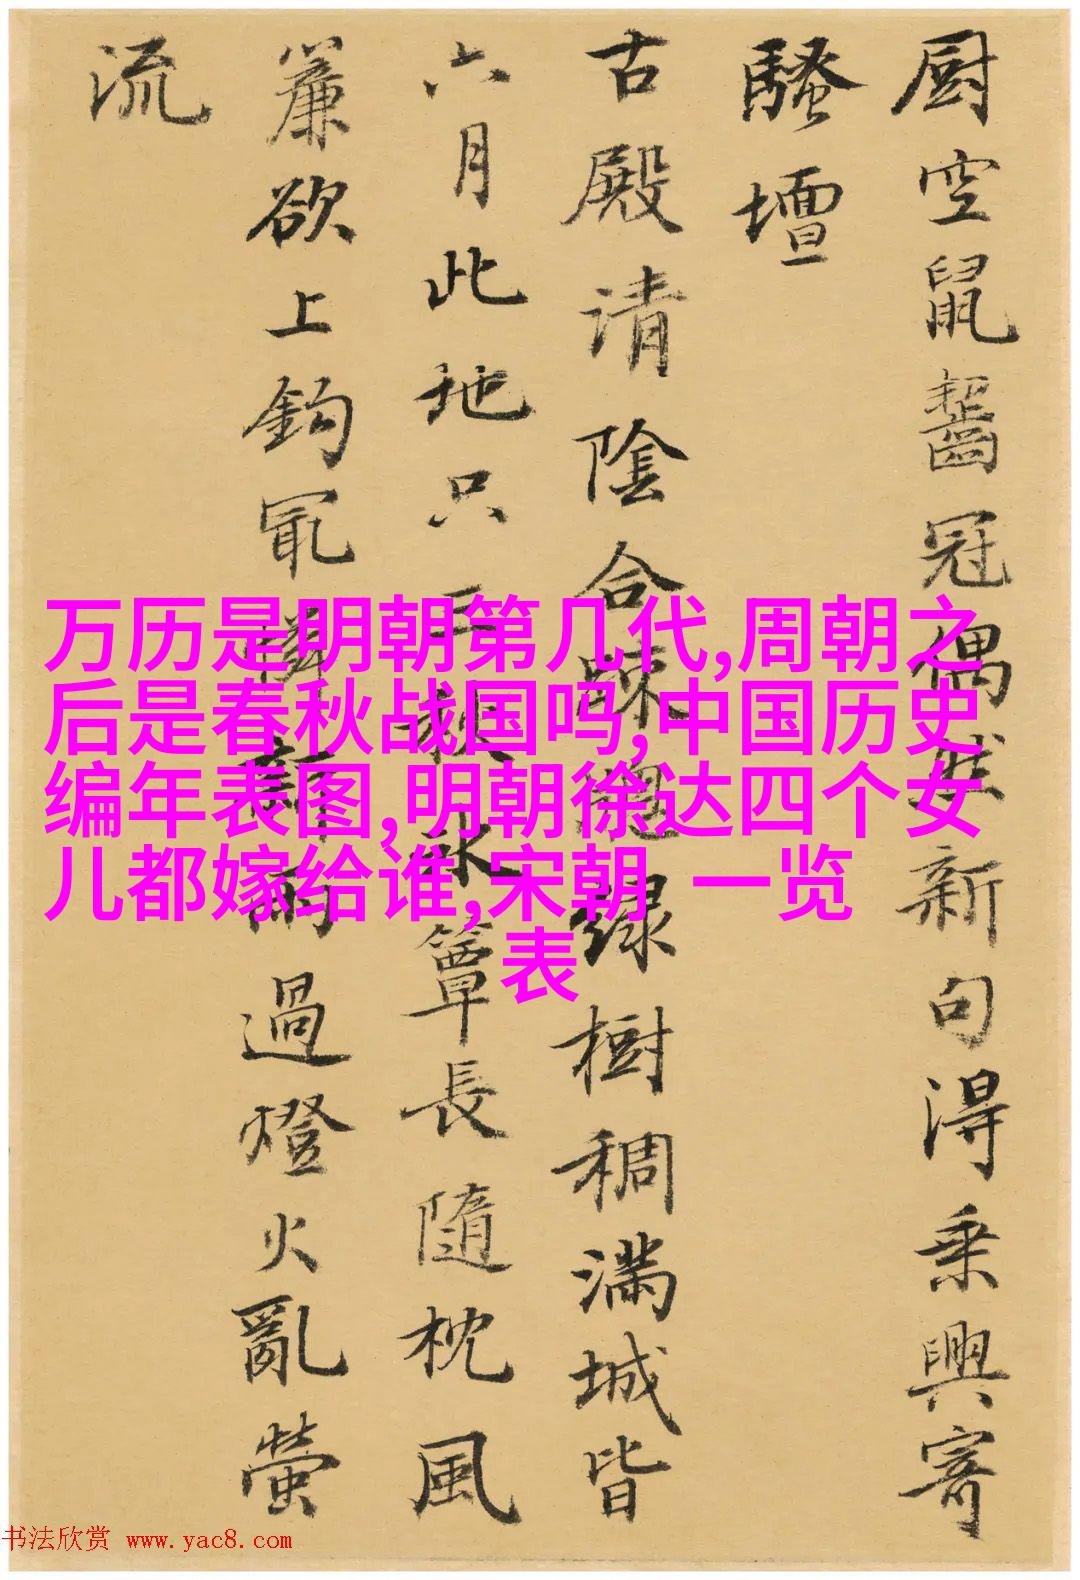 厨空鼠齧冠偶然新句得乗興寄
騷壇
古殿请陰合疎窓緑樹稠满城皆
六月此地只三秋氷簟長隨枕風
簾欲上鈎冣憐新雨過燈火亂螢
流
万历是明朝第几代,周朝之
后是春秋战国吗,中国历史
编年表图,明朝徐达四个女
儿都嫁给谁,宋朝 一览
表
书法欣赏 www.yac8.com